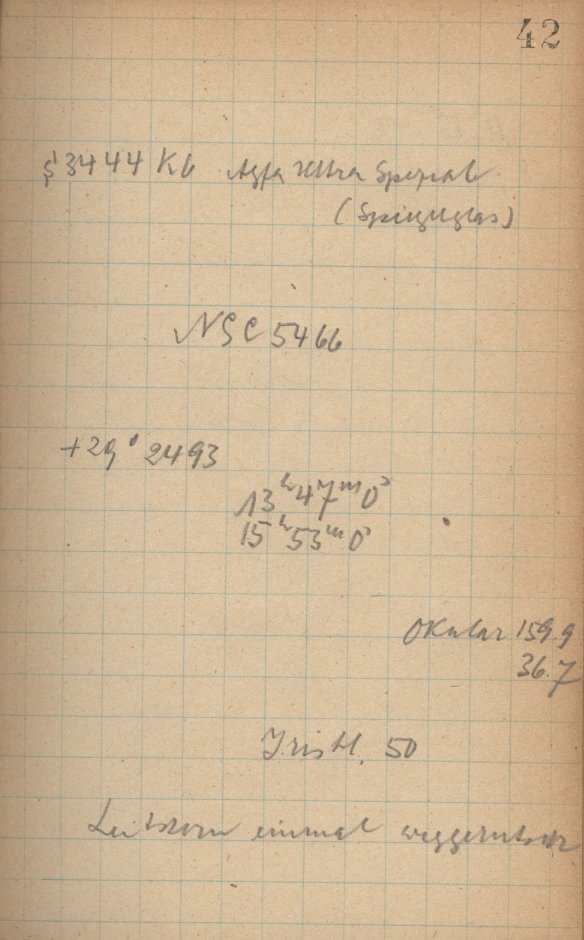 42
S 3444 Kb Agfa Ultra Spezial
(Spiegelglas)
NGC 5466
+29° 2493
13ʰ47ᵐ0ˢ
15ʰ53ᵐ0ˢ
Okular 159.9
36.7
Irisbl. 50
Leitstern einmal weggerutscht